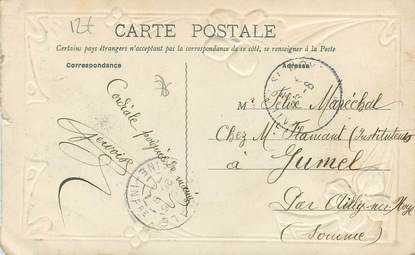 12f
CARTE POSTALE
Certains pays étrangers n'acceptant pas la correspondance de ce côté, se renseigner à la Poste
Correspondance
Adresse
Cordiale poignée de main
M. Félix Maréchal
Chez M. Flamant (Instituteur
à Jumel
Par Ailly-sur-Noye
(Somme)